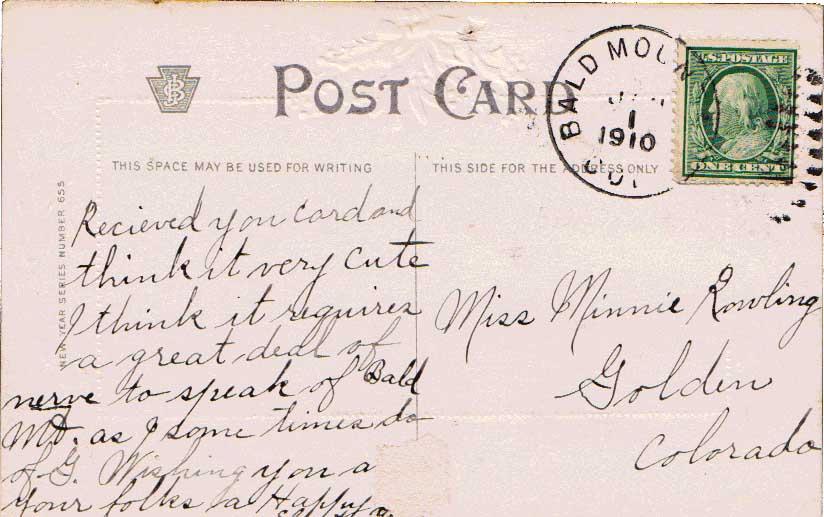 POST CARD
BALD MOUN
JAN
1
1910
COL
U.S. POSTAGE
ONE CENT
THIS SPACE MAY BE USED FOR WRITING
THIS SIDE FOR THE ADDRESS ONLY
NEW YEAR SERIES NUMBER 655
Recieved you card and
think it very cute
I think it requires
a great deal of
nerve to speak of Bald
Mt. as I some times do
of G. Wishing you a
your folks a Happy
Miss Minnie Rowling
Golden
Colorado